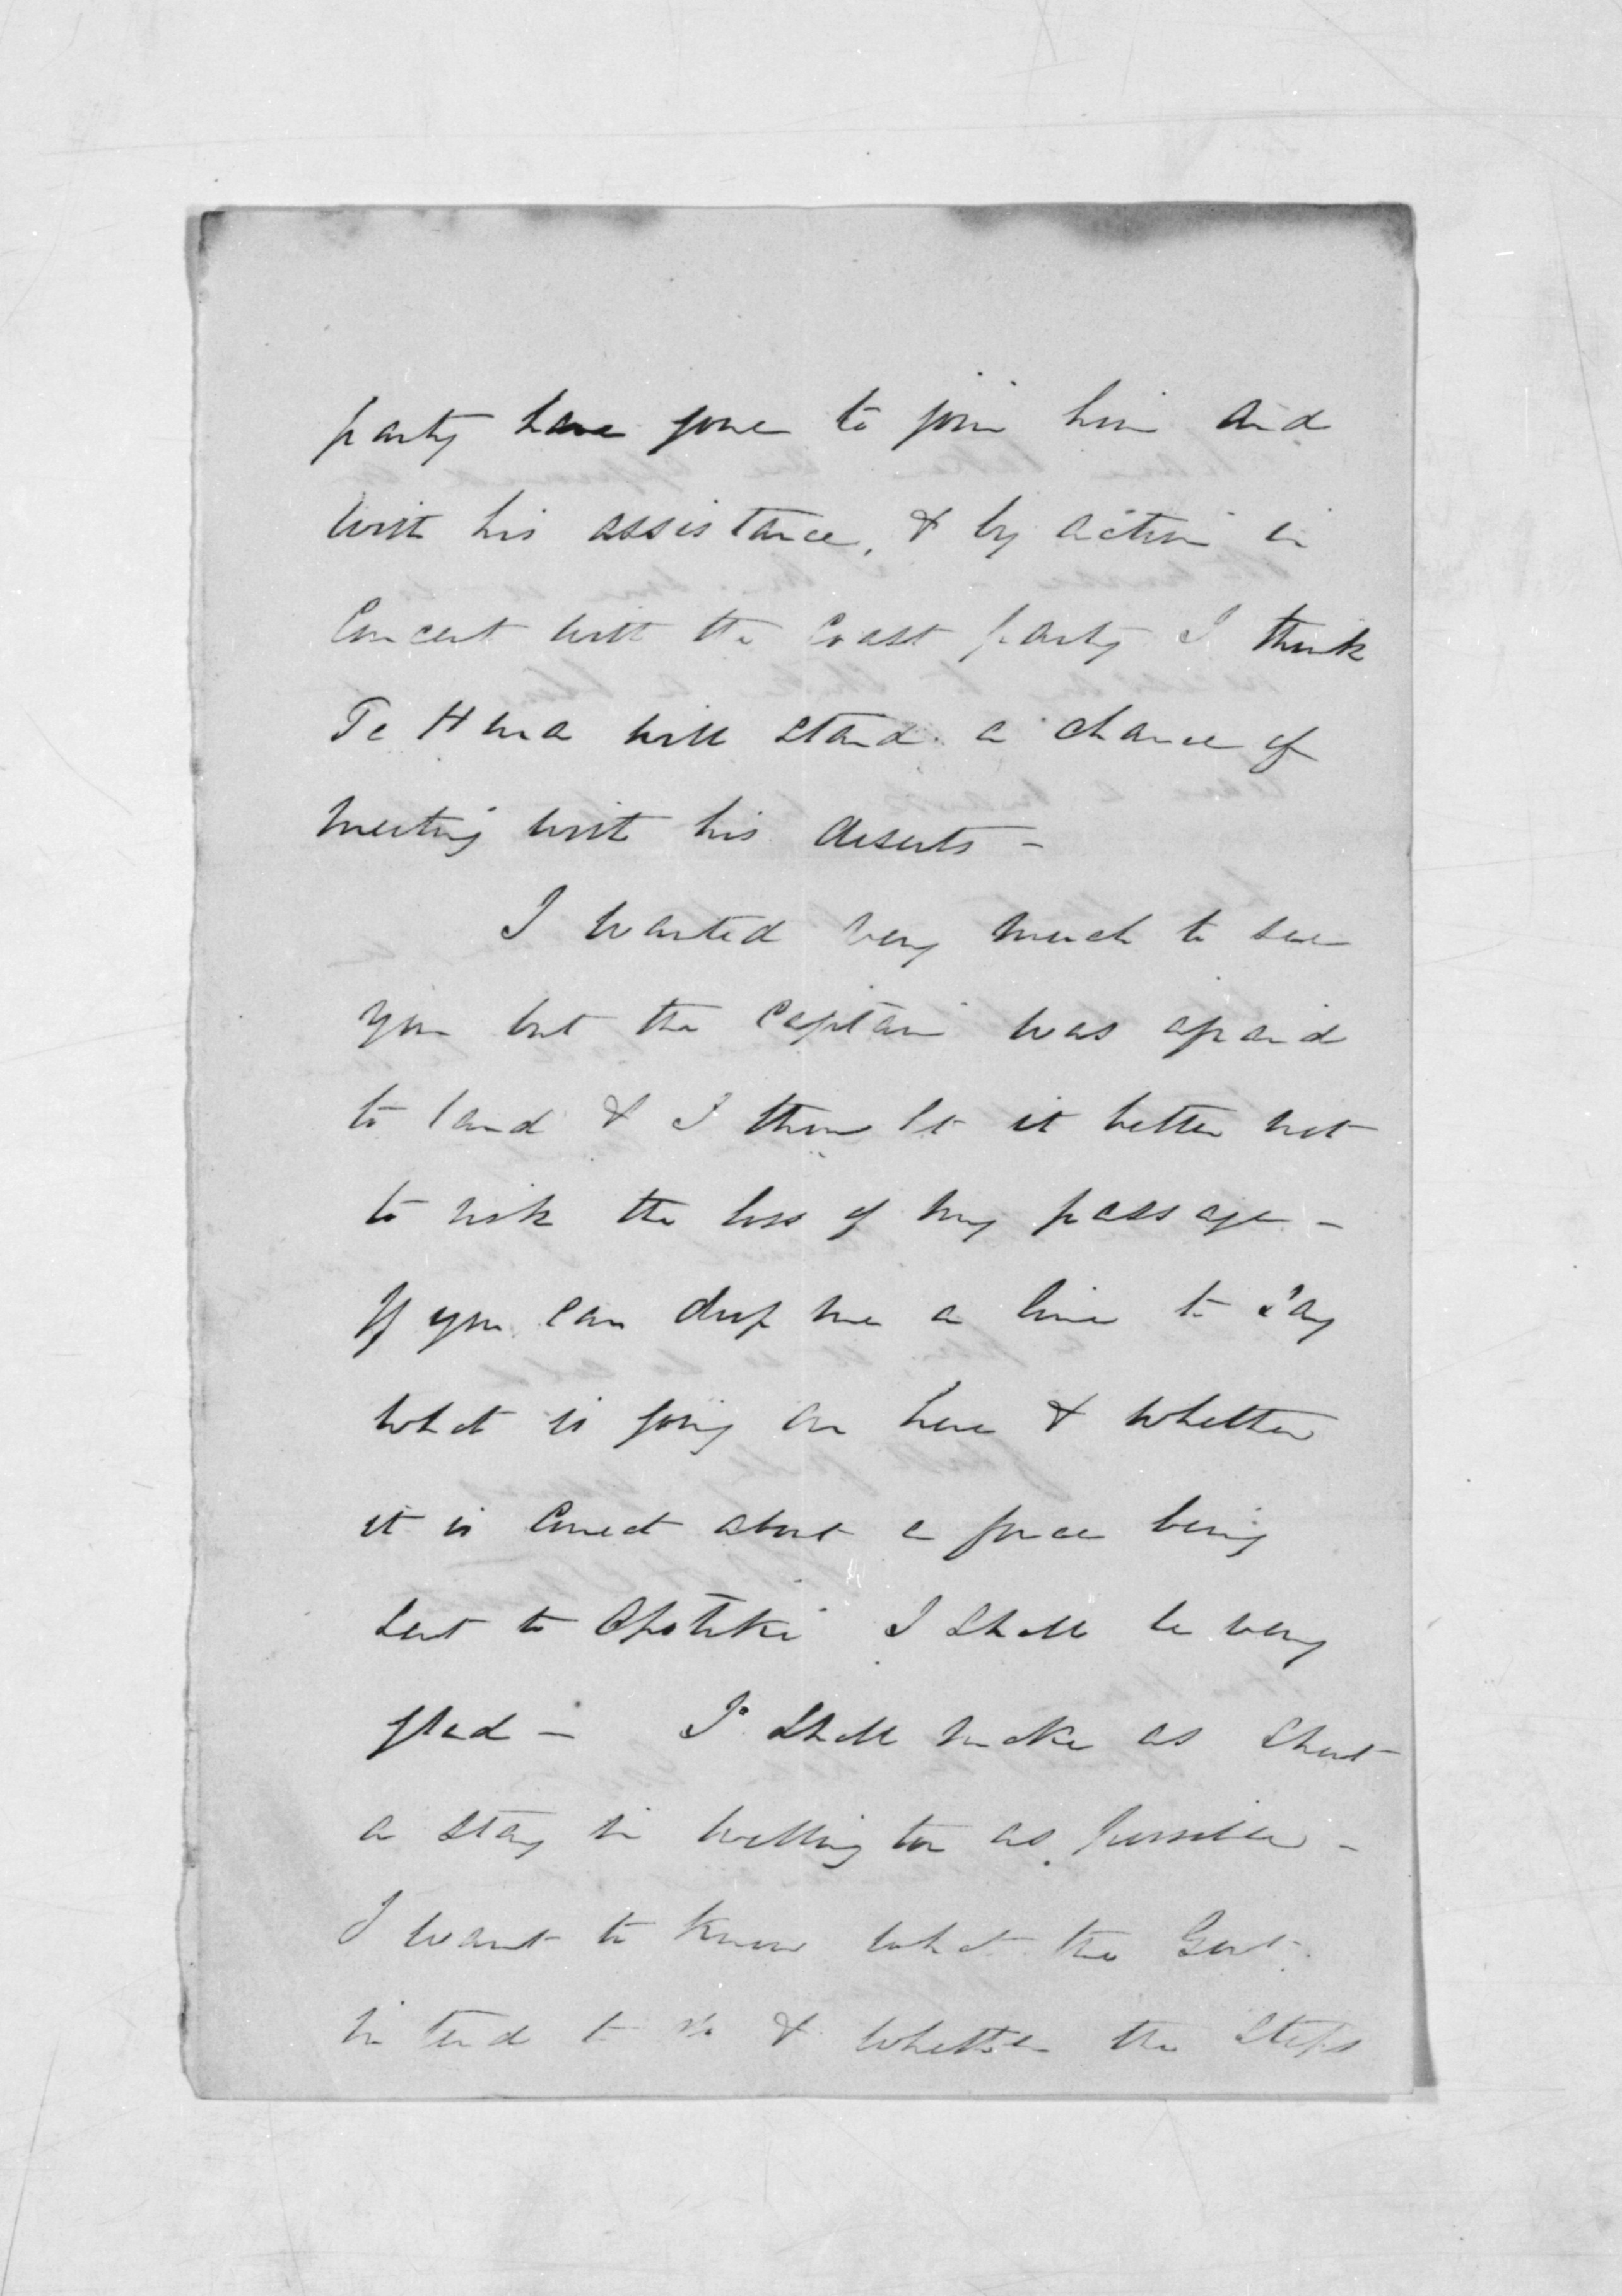 party have gone to join him and
with his assistance, & by action in
Concert with the Coast party I think
Te Hura will stand a chance of
meeting with his deserts -
I wanted very much to see
you but the Captain was afraid
to land & I thought it better not
to risk the loss of my passage -
If you can drop me a line to say
what is going on here & whether
it is correct about a force being
sent to Opotiki I shall be very
glad - I shall make as short
a stay in Wellington as possible -
I want to know what the Govt.
intend to do & whether the steps